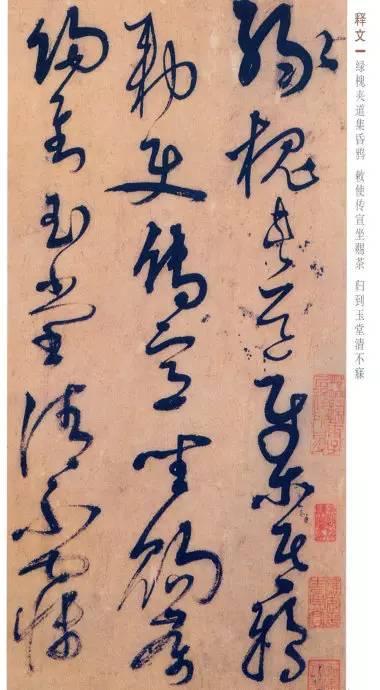 绿槐夹道集昏鸦
敕使传宣坐赐茶
归到玉堂清不寐
释文一
绿槐夹道集昏鸦 敕使传宣坐赐茶 归到玉堂清不寐